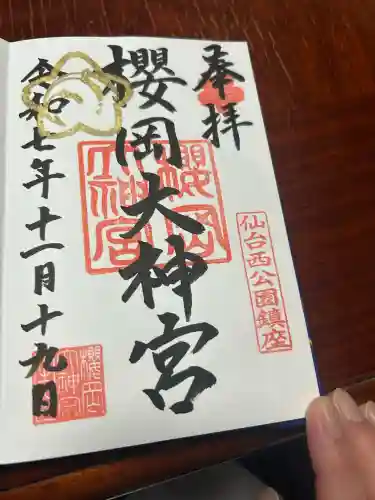 奉拝
櫻岡大神宮
櫻岡大神宮
仙台西公園鎮座
令和七年十一月十九日